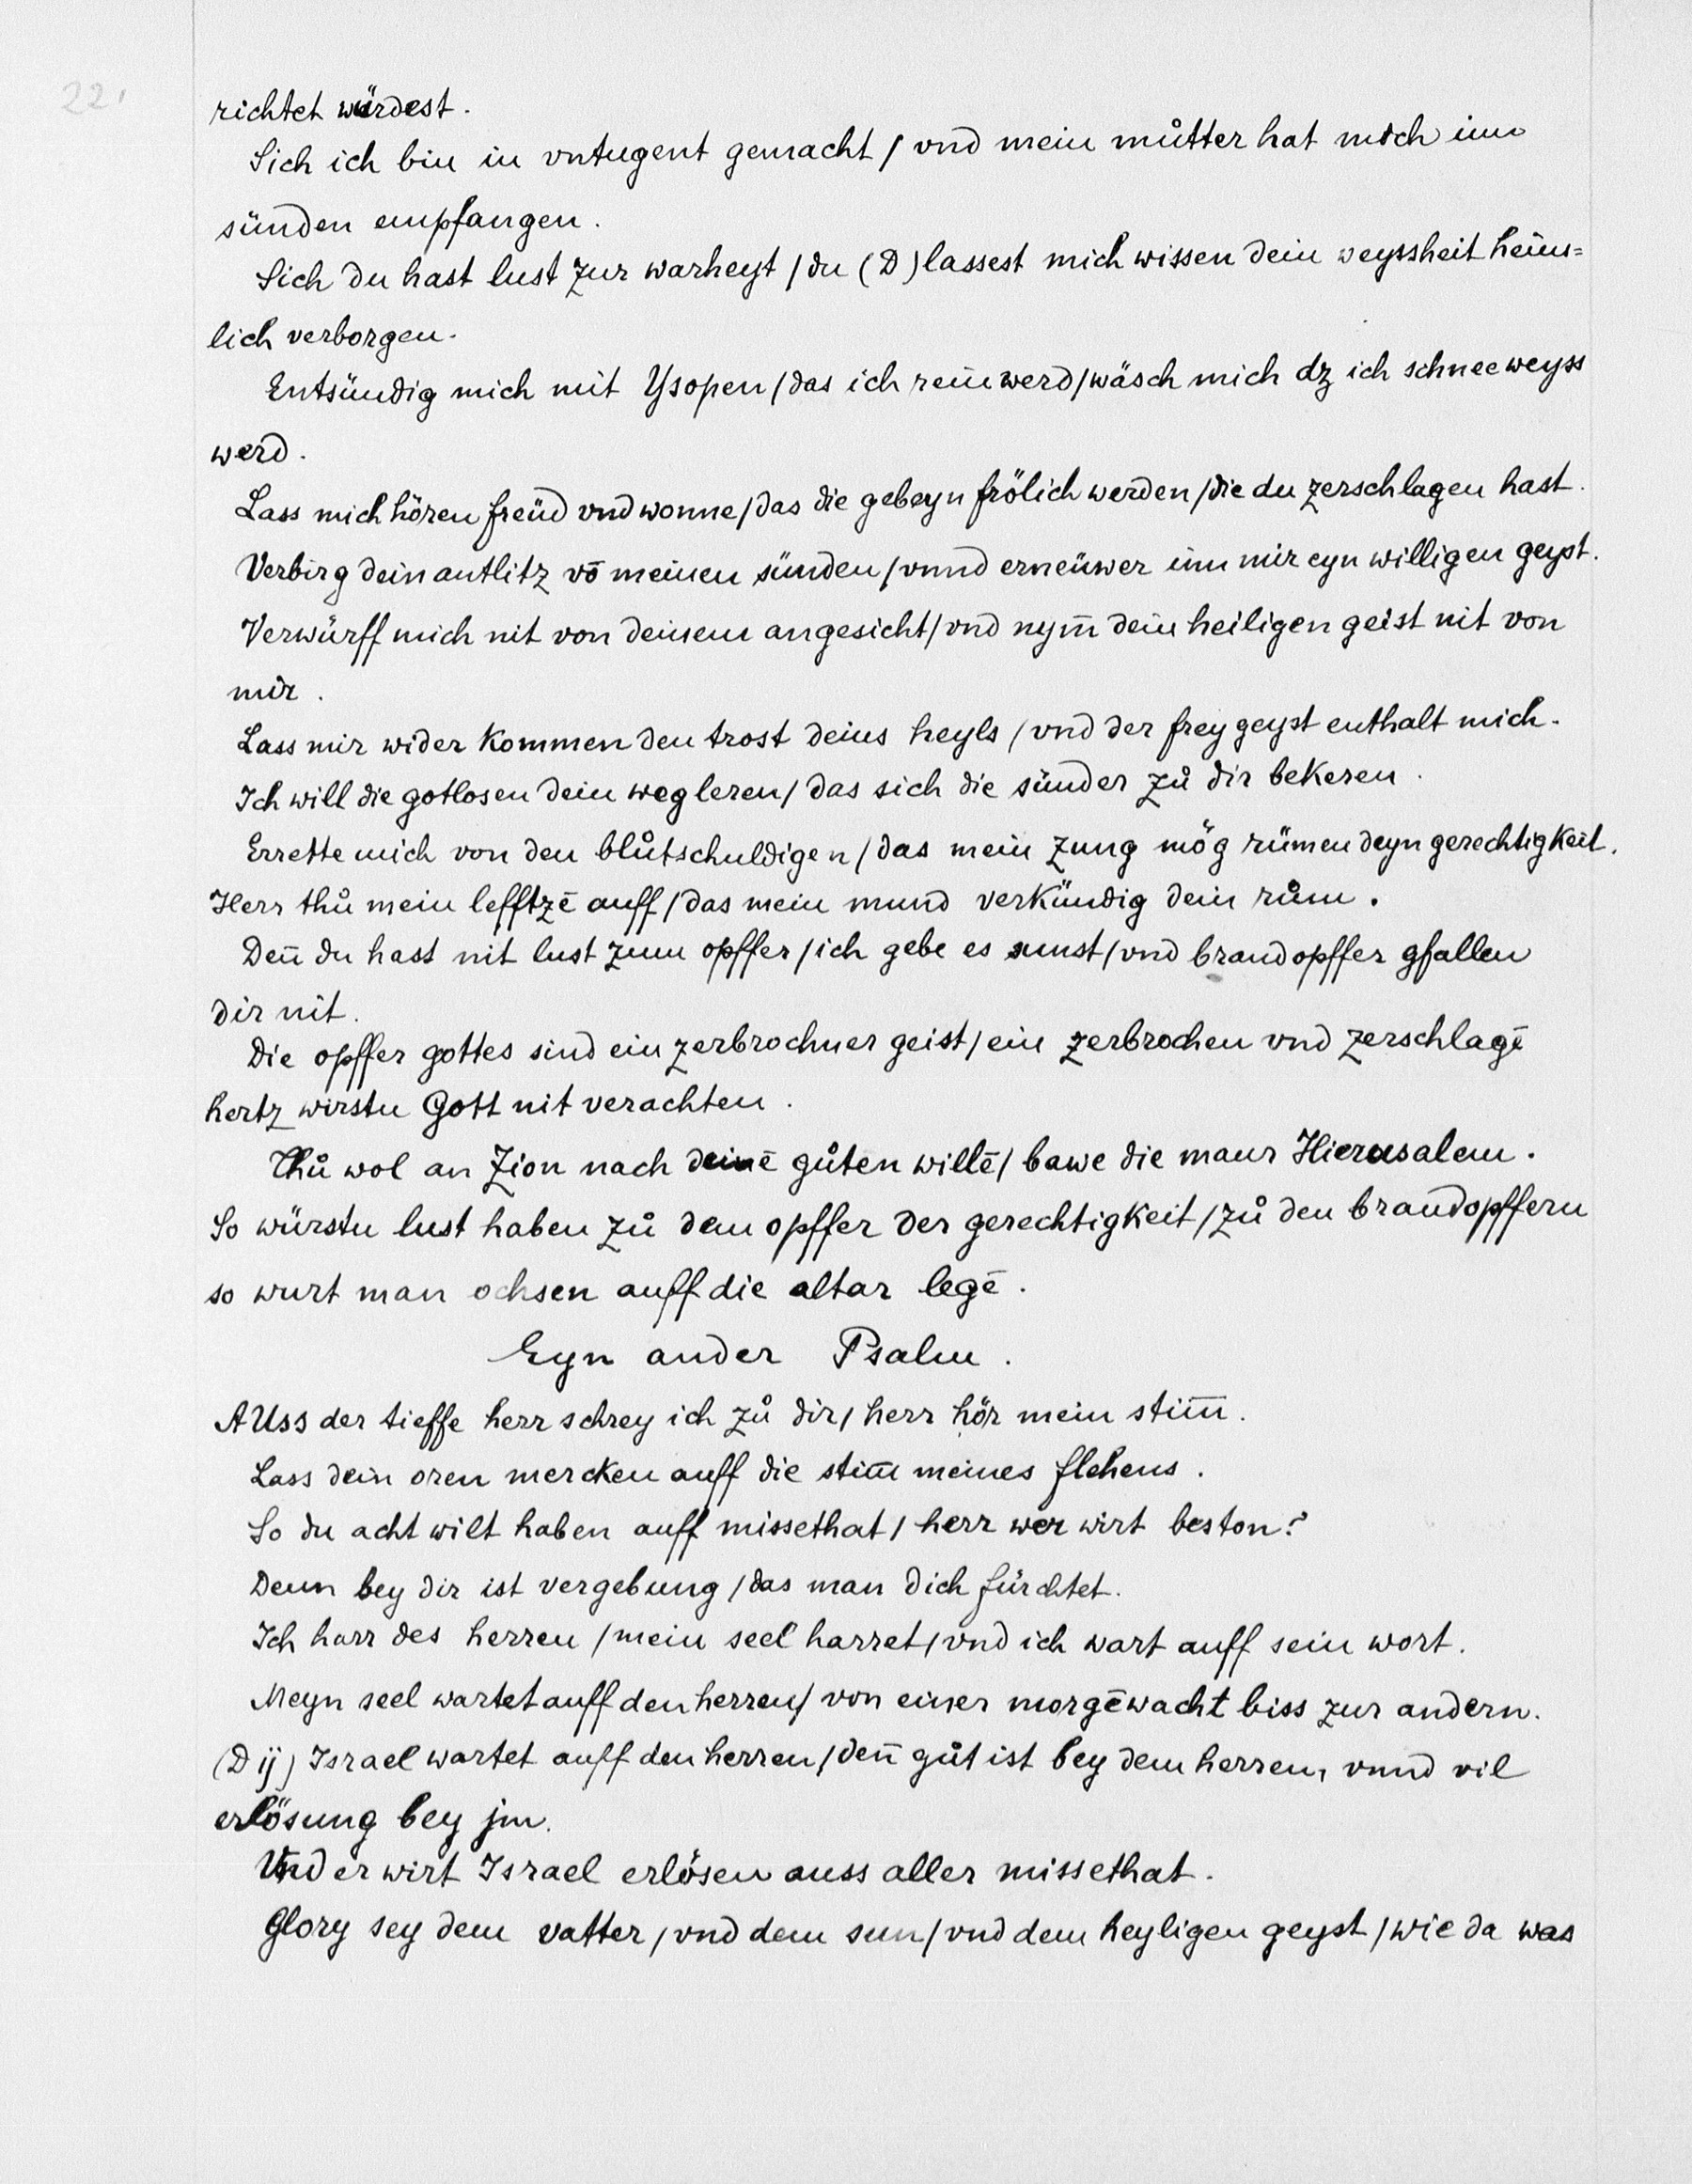 22.
richtet würdest.
Sich ich bin in vntugent gemacht / vnd mein můtter hat mich inn
sünden empfangen.
Sich du hast lust zur warheyt / du (D) lassest mich wissen dein weyssheit heim=
lich verborgen.
Entsündig mich mit Ysopen / das ich rein werd / wäsch mich dz ich schneeweyss
werd.
Lass mich hören freüd vnd wonne / das die gebeyn frölich werden / die du zerschlagen hast.
Verbirg dein antlitz võ meinen sünden / vnnd erneüwer inn mir eyn willigen geyst.
Verwürff mich nit von deinem angesicht / vnd nym̄ dein heiligen geist nit von
mir.
Lass mir wider kommen den trost deins heyls / vnd der frey geyst enthalt mich.
Ich will die gotlosen dein weg leren / das sich die sünder zů dir bekeren.
Errette mich von den blůtschuldigen / das mein zung mög rümen deyn gerechtigkeit.
Herr thů mein lefftzē auff / das mein mund verkündig dein rům.
Deñ du hast nit lust zum opffer / ich gebe es sunst / vnd brandopffer gfallen
dir nit.
Die opffer gottes sind ein zerbrochner geist / ein zerbrochen vnd zerschlagē
hertz wirstu Gott nit verachten.
Thů wol an Zion nach deinē gůten willē / bawe die maur Hierusalem.
So würstu lust haben zů dem opffer der gerechtigkeit / zů den brandopffern
so wurt man ochsen auff die altar legē.
Eyn ander Psalm.
AUss der tieffe herr schrey ich zů dir / herr hör mein stim̄.
Lass dein oren mercken auff die stim̄ meines flehens.
So du acht wilt haben auff missethat / herr wer wirt beston?
Denn bey dir ist vergebung / das man dich fürchtet.
Ich harr des herren / mein seel harret / vnd ich wart auff sein wort.
Meyn seel wartet auff den herren / von einer morgēwacht biss zur andern.
(D ij) Israel wartet auff den herren / deñ gůt ist bey dem herren, vnnd vil
erlösung bey jm.
Vnd er wirt Israel erlösen auss aller missethat.
Glory sey dem vatter / vnd dem sun / vnd dem heyligen geyst / wie da was